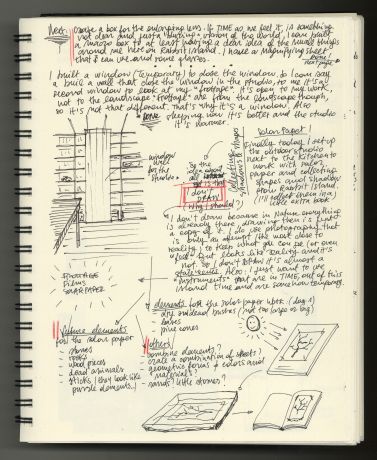 Next: make a box for the enlarging lens. If TIME as we feel it, is something
not clear and just a "blurring" version of the world, I can built
a macro box to at least having a clear idea of the small things
around me here on Rabbit Island. I have a magnifying sheet
that I can use and some glasses.
next page
I built a window (temporary) to close the window. So I can say
I built a wall to close the window in the studio, to me it's a
second window to look at my "frottage". It's open to my work,
not to the landscape. "Frottage" are from the landscape though,
so it's not that different. That's why it's a window. Also
keeping now it's better and the studio
it's warmer.
DONE
window
for the
studio
So the
idea about
all
is that
I don't
DRAW
Why I should?
collecting shapes
shadows
SOLAR PAPER
Finally today I set up
the outdoor studio
next to the kitchen to
work with solar
paper and collecting
shapes and shadow
from Rabbit Island.
I'll collect them in a
little extra book.
I don't draw because in Nature everything
is already there, drawing then is just
a copy of it. I do use photography that
is only an attempt (the most close to
reality) to keep what you can see (or even
"feel") that looks like reality and it's
not. So I don't DRAW it's almost a
statement. Also: I just want to use
"instruments" that are in TIME, out of this
island time and are somehow temporary.
- FROTTAGE
- FILMS
- SOLAR PAPER
elements for the solar paper uber: (day 1)
- dry oxidised bushes (not too large or big)
- bones
- pine cones
future elements
for the solar paper
- stones
- roots
- wood pieces
- dead animals
- sticks (they look like
puzzle elements..)
others:
- combine elements?
- create a combination of objects?
- geometric forms & colors and
materials?
- sands? little stones?